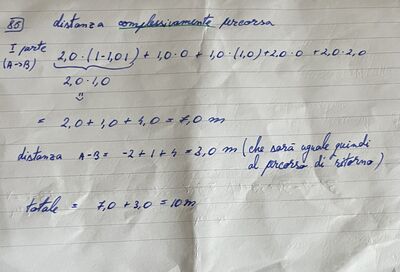 85 distanza complessivamente percorsa
I parte 2,0·(|-1,0|) + 1,0·0 + 1,0·(1,0)+2,0·0 +2,0·2,0
(A→B)
2,0·1,0
= 2,0 + 1,0 + 4,0 = 7,0 m
distanza A-B = -2+1+4 = 3,0 m (che sarà uguale quindi
al percorso di ritorno)
totale = 7,0 + 3,0 = 10 m